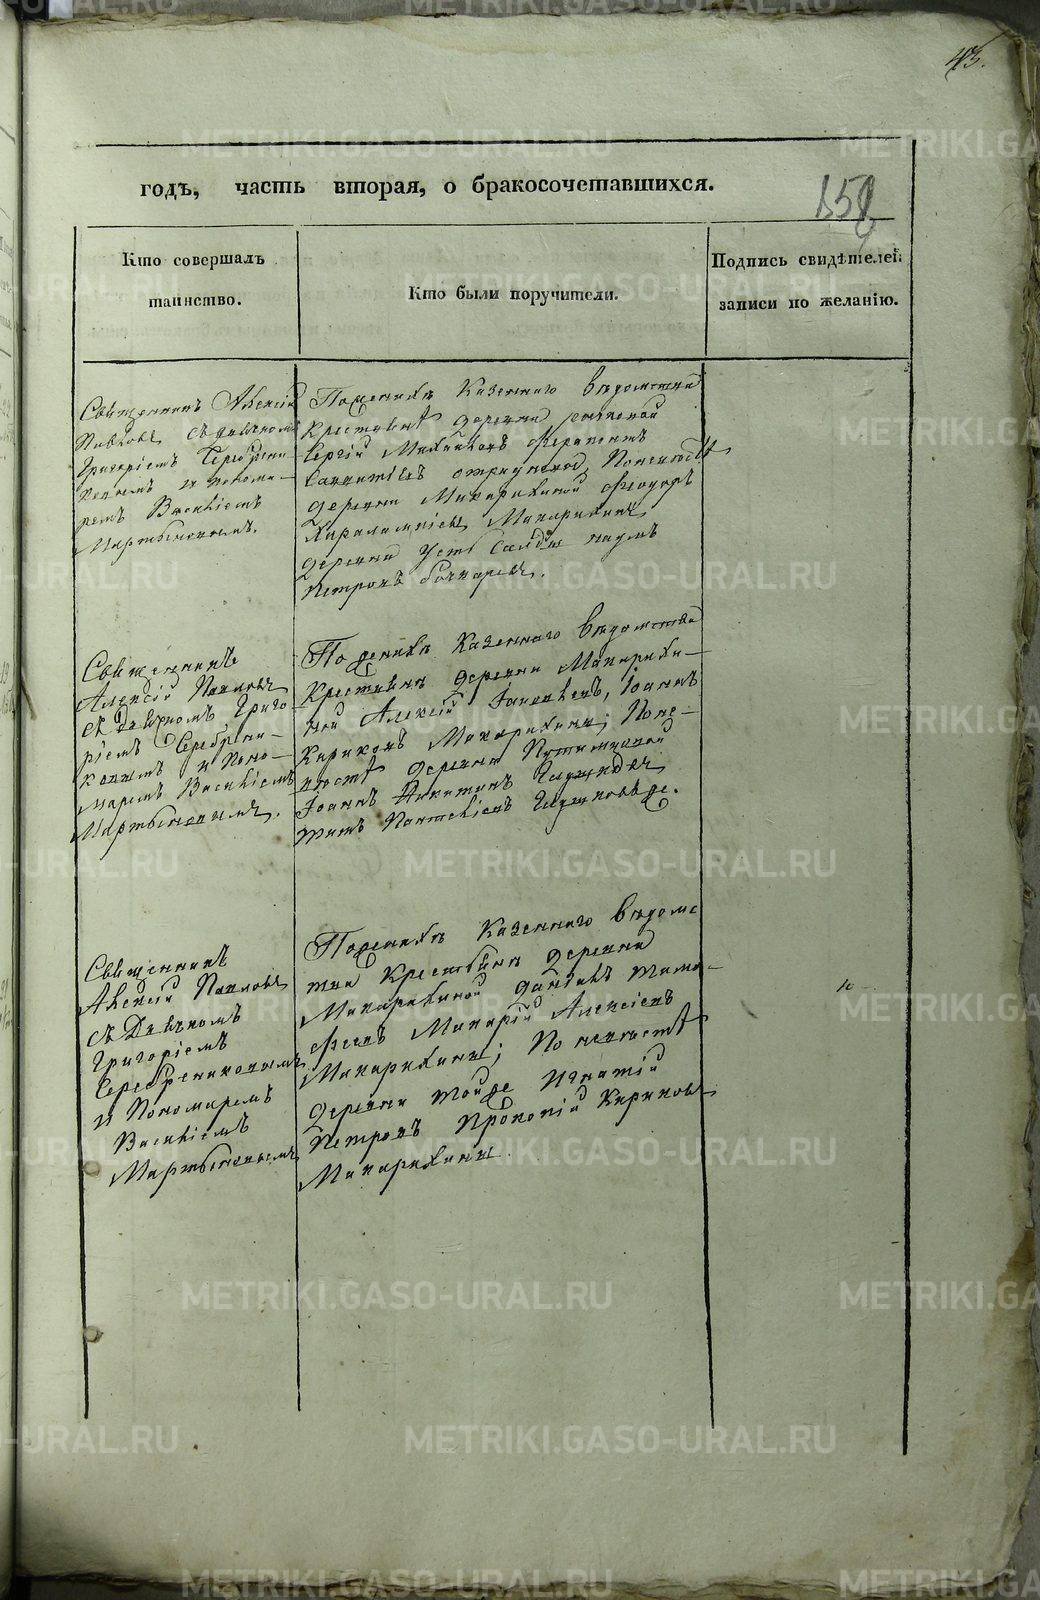 43.
годъ, часть вторая, о бракосочетавшихся.
158
Кто совершалъ
таинство.
Кто были поручители.
Подпись свидѣтелей
записи по желанію.
Священникъ Алексій
Павловъ съ дьячкомъ
Григоріемъ Серебрени-
ковымъ и понома-
ремъ Василіемъ
Мартыновымъ.
По женихѣ казеннаго вѣдомства
крестьянѣ деревни
Сергій Михайловъ Ферапонтъ
По невѣстѣ
деревни Махарихиной Феодоръ
Харалампіевъ Махарихинъ,
деревни Усть Салды Наумъ
Петровъ Бочкаревъ.
Священникъ
Алексій Павловъ
съ дьячкомъ Григо-
ріемъ Серебрени-
ковымъ и Поно-
маремъ Василіемъ
Мартыновымъ.
По женихѣ казеннаго вѣдомства
крестьянъ деревни Махарихи-
ной Алексій Іаковлевъ, Іоаннъ
Кириковъ Махарихины; По не-
вѣстѣ деревни Путимцовой
Іоаннъ Никитинъ
Титъ Пантелѣевъ
Священникъ
Алексій Павловъ
съ Дьячкомъ
Григоріемъ
Серебрениковымъ
и Пономаремъ
Василіемъ
Мартыновымъ
По женихѣ казеннаго вѣдомс
тва крестьянъ деревни
Махарихиной Данилъ Тимо-
феевъ Макарій Алексіевъ
Махарихины; По невѣстѣ
деревни тойже Игнатій
Петровъ Прокопій Кириковъ
Махарихины
METRIKI.GASO-URAL.RU